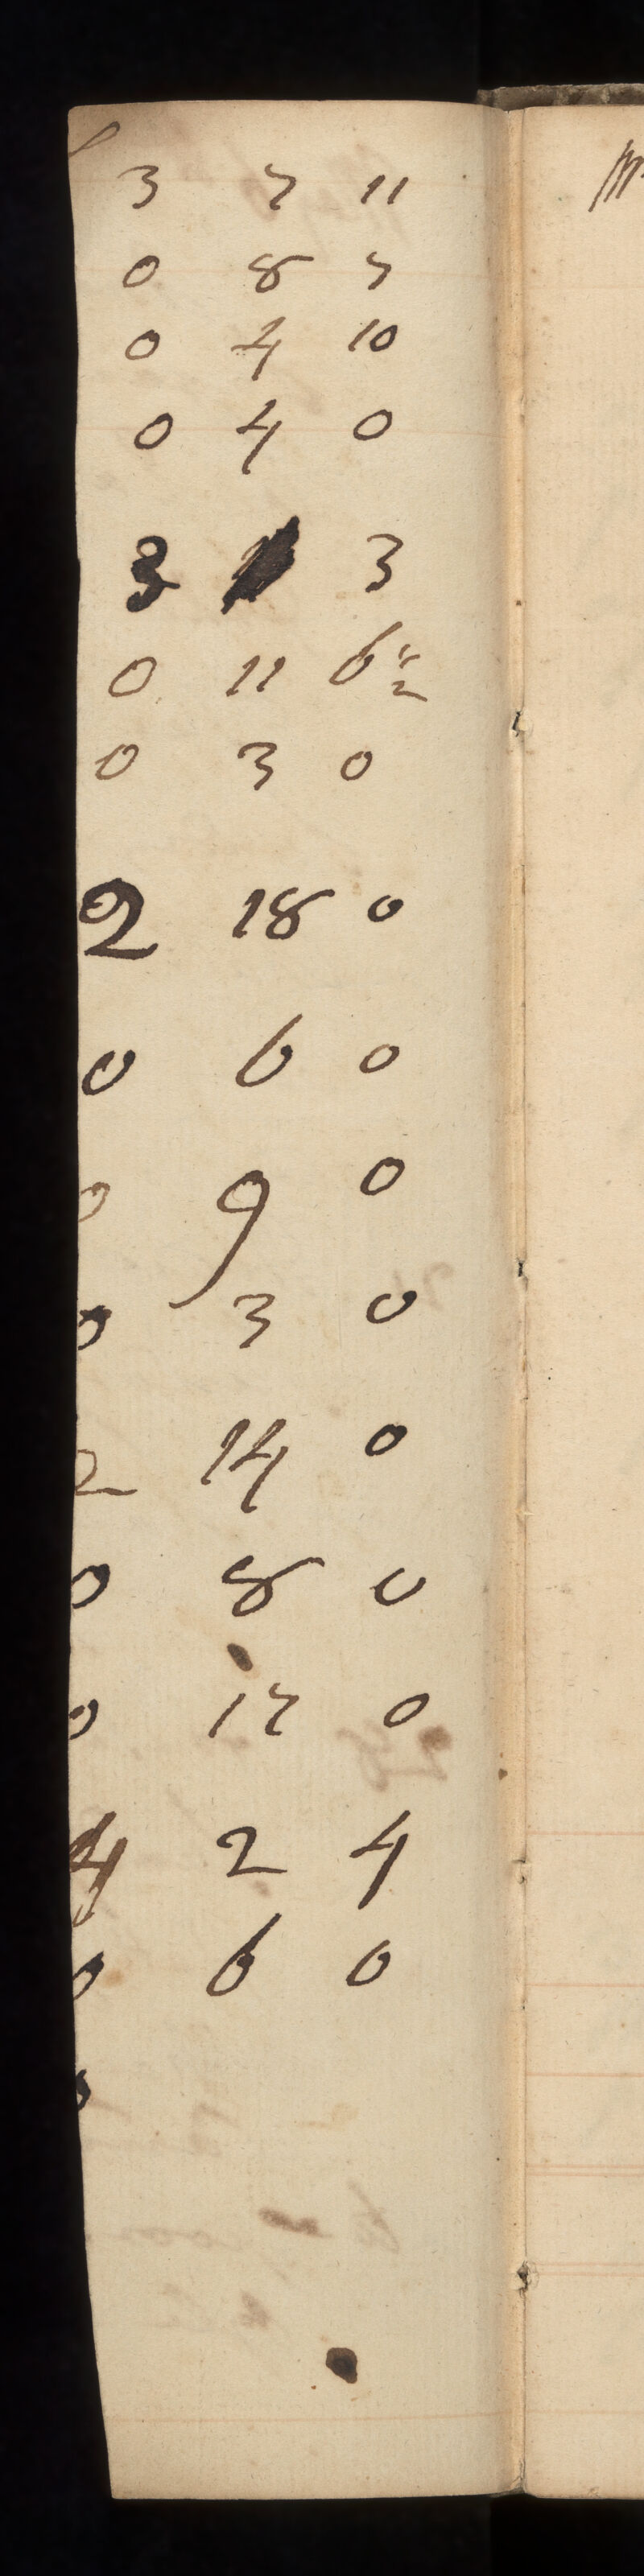 3 7 11
0 8 7
0 4 10
0 4 0
3 3
0 11 6 1/2
0 3 0
2 18 0
0 6 0
0 9 0
0 3 0
2 14 0
0 8 0
0 17 0
4 2 4
0 6 0
0